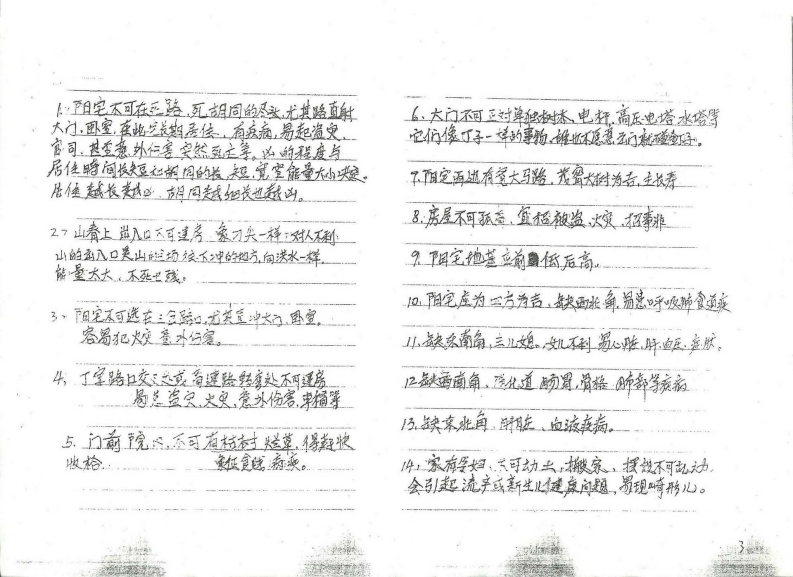 1. 阳宅不可在马路、死胡同的尽头,尤其路直射
大门,卧室,在此长期居住,有疾病,易起盗灾,
官司,甚至意外伤害突然死亡等。凶的程度与
居住时间长短和胡同的长,短,宽窄能量大小决定。
居住越长越凶,胡同越细长也越凶。
2、山脊上出入口不可建房,象刀尖一样,对人不利
山的出入口是山的磁场往下冲的地方,向洪水一样,
能量太大,不死也残。
3、阳宅不可选在三岔路口,尤其直冲大门,卧室,
容易犯火灾意外伤害。
4、丁字路口交叉处或高速路转弯处不可建房
易犯盗灾,火灾,意外伤害,车祸等
5、门前院心不可有枯树烂草,得赶快
收拾 疾病。
6、大门不可正对单独树木,电杆,高压电塔水塔等
它们像钉子一样的事物,谁也不愿意开门就碰钉子。
7.阳宅西边有宽大马路,茂密大树为吉,主长寿
8、房屋不可孤高,宜招被盗,火灾,招事非
9、阳宅地基应前低后高。
10、阳宅应为四方为吉,缺西北角,易患呼吸肺食道疾
11、缺东南角,三儿媳。女儿不利易心脏,肝,血压,症状。
12缺西南角,消化道肠胃,骨格肺部等疾病
13、缺东北角,肝脏,血液疾病。
14、家有孕妇,不可动土,搬家,摆设不可乱动
会引起流产或新生儿健康问题,易现畸形儿。
3